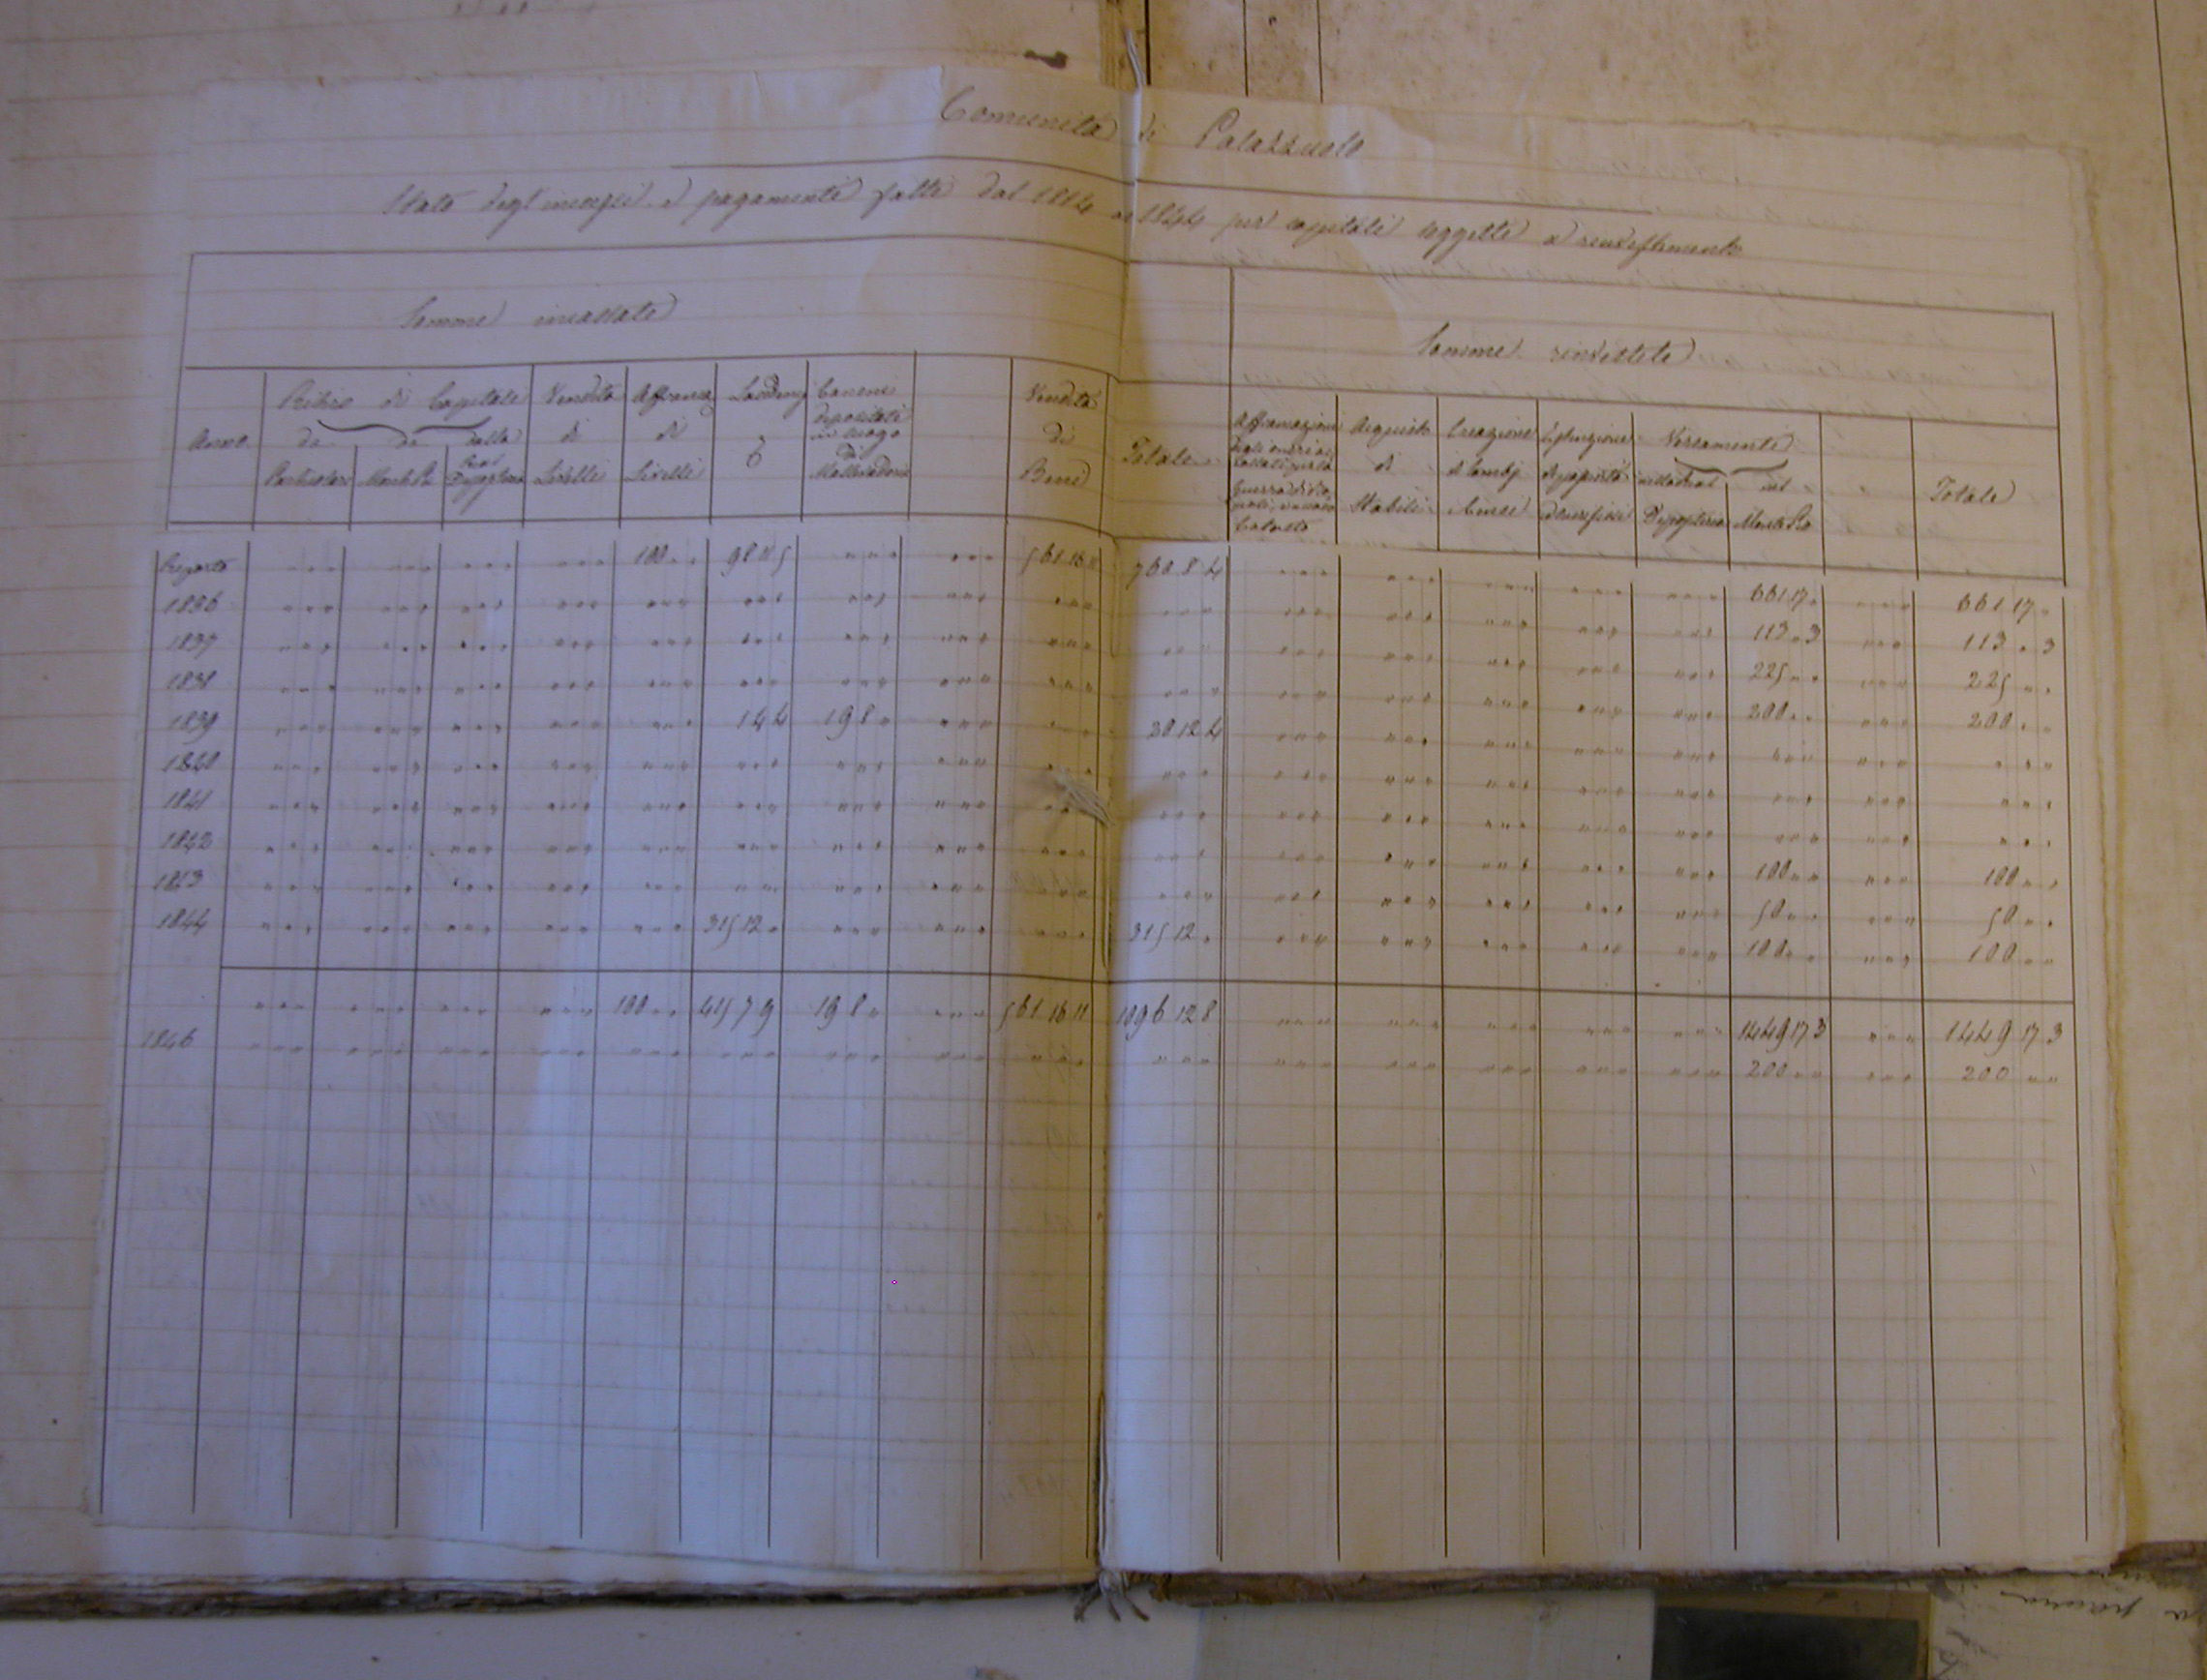 Comunità di Palazzuolo
Stato degl'incassi e pagamenti fatti dal 1814 al 1844 per capitali soggetti a rinvestimento
Somme incassate
Somme rinvestite
Anno
Ritiro di Capitali
da Particolari
da
dalla Depositeria
Vendita di Livelli
di Livelli
Canoni depositati in luogo di Mallevadore
Vendita di Beni
Totale
Affrancazione
Acquisto di Stabili
Creazione di e Censi
Versamenti
nella Depositeria
nel Monte Pio
Totale
Riporto " " " " " " " " " " " " 100 " " 98 11 5 " " " " " " 561 16 11 760 8 4 " " " " " " " " " " " " " " " 661 17 " " " " 661 17 "
1836 " " " " " " " " " " " " " " " " " " " " " " " " " " " " " " " " " " " " " " " " " " " " " 113 " 3 " " " 113 " 3
1837 " " " " " " " " " " " " " " " " " " " " " " " " " " " " " " " " " " " " " " " " " " " " " 225 " " " " " 225 " "
1838 " " " " " " " " " " " " " " " " " " " " " " " " " " " " " " " " " " " " " " " " " " " " " 200 " " " " " 200 " "
1839 " " " " " " " " " " " " " " " 1 4 4 19 8 " " " " " " " 20 12 4 " " " " " " " " " " " " " " " " " " " " " " " "
1840 " " " " " " " " " " " " " " " " " " " " " " " " " " " " " " " " " " " " " " " " " " " " " " " " " " " " " "
1841 " " " " " " " " " " " " " " " " " " " " " " " " " " " " " " " " " " " " " " " " " " " " " " " " " " " " " "
1842 " " " " " " " " " " " " " " " " " " " " " " " " " " " " " " " " " " " " " " " " " " " " " 100 " " " " " 100 " "
1843 " " " " " " " " " " " " " " " " " " " " " " " " " " " " " " " " " " " " " " " " " " " " " 50 " " " " " 50 " "
1844 " " " " " " " " " " " " " " " 315 12 " " " " " " " " " " 315 12 " " " " " " " " " " " " " " " " 100 " " " " " 100 " "
" " " " " " " " " " " " 100 " " 415 7 9 19 8 " " " " 561 16 11 1096 12 8 " " " " " " " " " " " " " " " 1449 17 3 " " " 1449 17 3
1846 " " " " " " " " " " " " " " " " " " " " " " " " " " " " " " " " " " " " " " " " " " " " " 200 " " " " " 200 " "